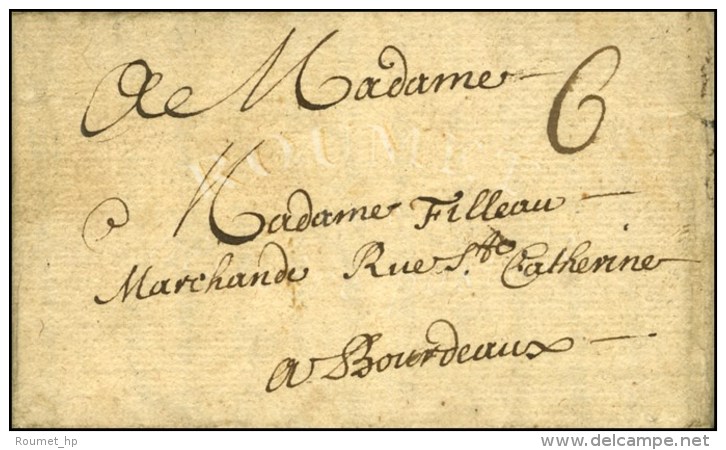 A Madame 6
A Madame Filleau
Marchande Rue Ste Catherine
a Bourdeaux
ROUMET
Roumet_hp
©delcampe.net